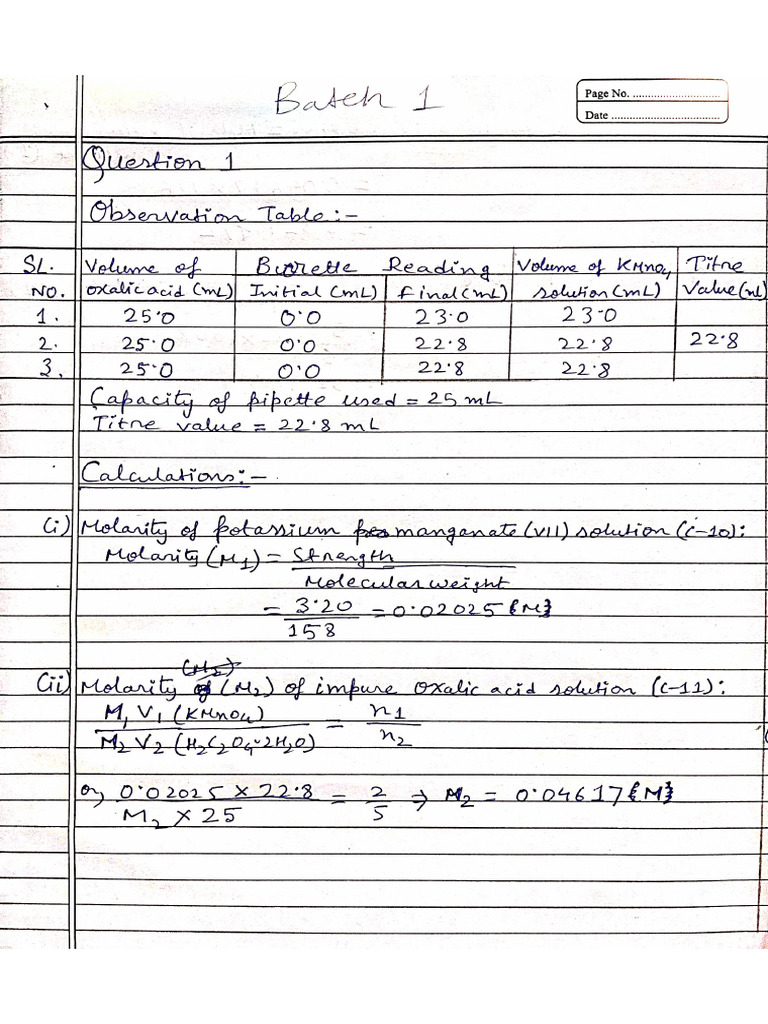 Batch 1
Page No. ..............................
Date ......................................
Question 1
Observation Table:-
SL. Volume of Burette Reading Volume of KMnO4 Titre
NO. oxalic acid (mL) Initial (mL) final (mL) solution (mL) Value (mL)
1. 25.0 0.0 23.0 23.0
2. 25.0 0.0 22.8 22.8 22.8
3. 25.0 0.0 22.8 22.8
Capacity of pipette used = 25 mL
Titre value = 22.8 mL
Calculations:-
(i) Molarity of potassium manganate (VII) solution (C-10):
Molarity (M1) = Strength
Molecular weight
= 3.20 = 0.02025 {M}
158
(ii) Molarity (M2) of impure oxalic acid solution (C-11):
M1 V1 (KMnO4) = n1
M2 V2 (H2C2O4.2H2O) n2
or, 0.02025 x 22.8 = 2 ⇒ M2 = 0.04617 {M}
M2 x 25 5